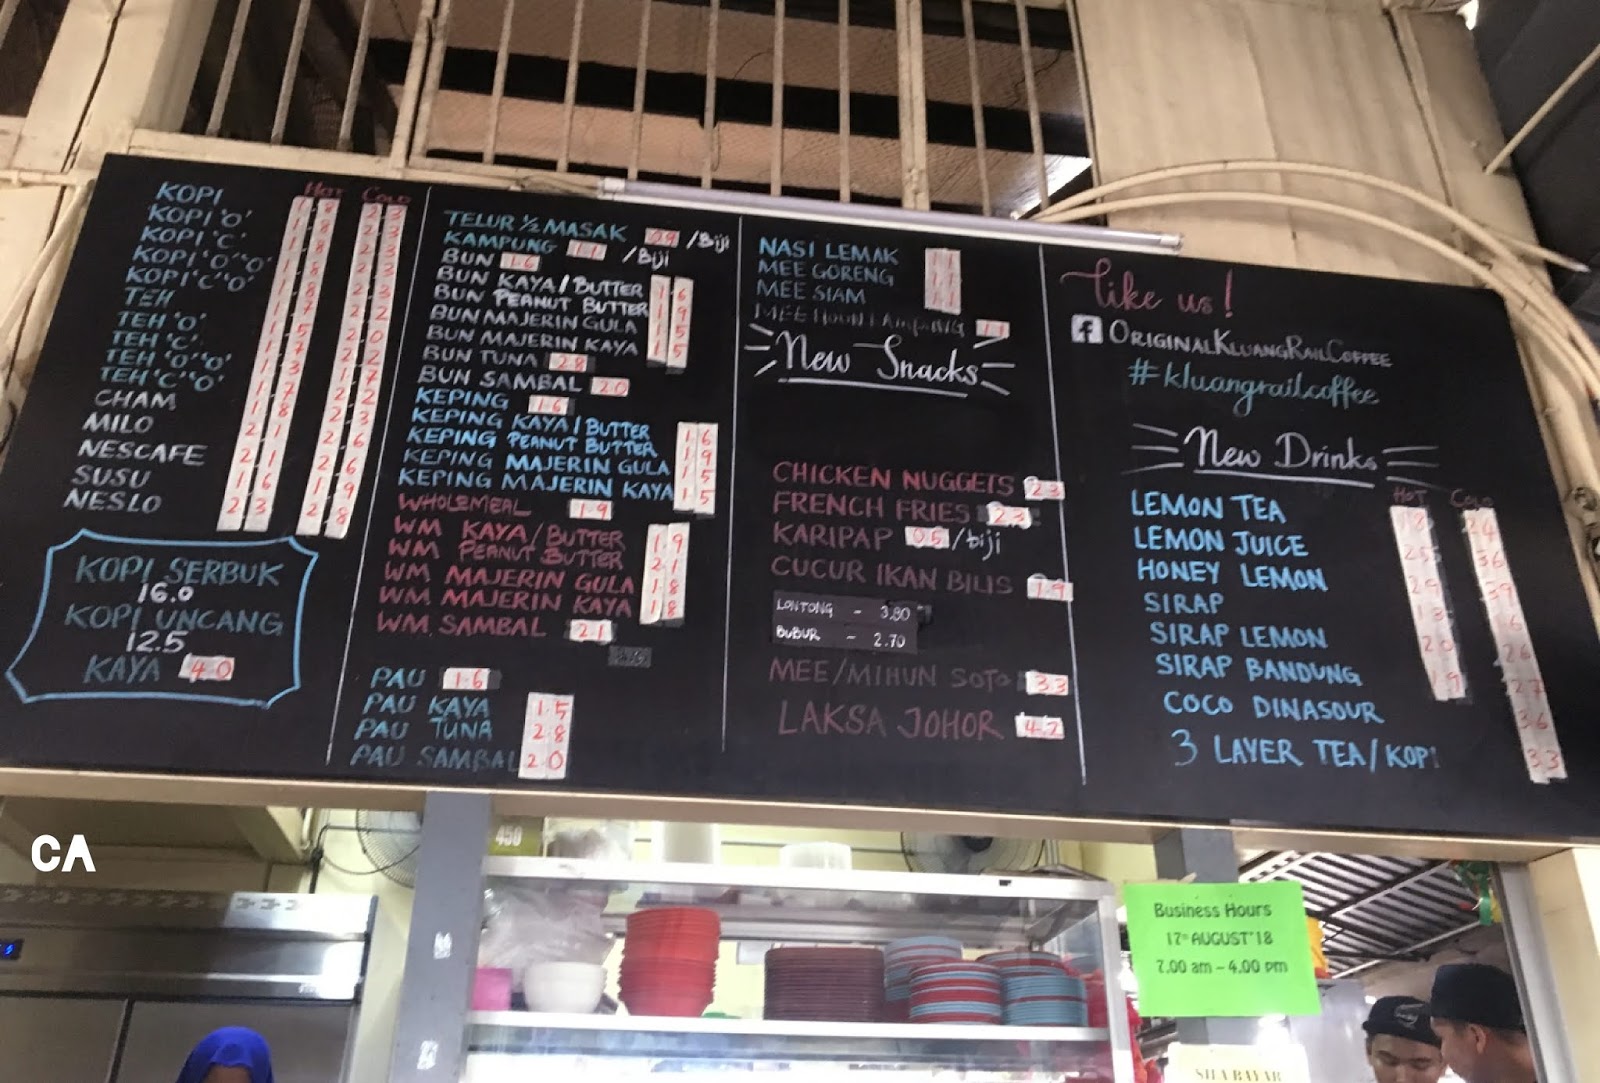 HOT COLD
KOPI 1.8 2.3
KOPI 'O'
KOPI 'C'
KOPI 'O' 'O'
KOPI 'C' 'O'
TEH
TEH 'O'
TEH 'C'
TEH 'O' 'O'
TEH 'C' 'O'
CHAM
MILO
NESCAFE
SUSU
NESLO 2.3 2.8
KOPI SERBUK
16.0
KOPI UNCANG
12.5
KAYA 4.0
TELUR ½ MASAK /Biji
KAMPUNG 1.1 /Biji
BUN 1.6
BUN KAYA/BUTTER 1.6
BUN PEANUT BUTTER 1.9
BUN MAJERIN GULA 1.5
BUN MAJERIN KAYA 1.5
BUN TUNA 2.8
BUN SAMBAL 2.0
KEPING 1.6
KEPING KAYA/BUTTER 1.6
KEPING PEANUT BUTTER 1.9
KEPING MAJERIN GULA 1.5
KEPING MAJERIN KAYA 1.5
WHOLEMEAL 1.9
WM KAYA/BUTTER 1.9
WM PEANUT BUTTER 2.1
WM MAJERIN GULA 1.8
WM MAJERIN KAYA 1.8
WM SAMBAL 2.1
PAU 1.6
PAU KAYA 1.5
PAU TUNA 2.8
PAU SAMBAL 2.0
NASI LEMAK 1.1
MEE GORENG 1.1
MEE SIAM 1.1
MEE HOON 1.1
New Snacks
CHICKEN NUGGETS 2.3
FRENCH FRIES 2.3
KARIPAP 0.5 /biji
CUCUR IKAN BILIS 1.9
LONTONG - 3.80
BUBUR - 2.70
MEE/MIHUN SOTO 3.3
LAKSA JOHOR 4.2
like us!
f ORIGINALKLUANGRAILCOFFEE
#kluangrailcoffee
New Drinks
HOT COLD
LEMON TEA 1.8 2.4
LEMON JUICE 2.5 3.6
HONEY LEMON 2.9 3.9
SIRAP 1.3 1.6
SIRAP LEMON 2.0 2.6
SIRAP BANDUNG 1.9 2.7
COCO DINASOUR 3.6
3 LAYER TEA/KOPI 3.3
CA
450
Business Hours
17th AUGUST'18
7.00 am – 4.00 pm
SILA BAYAR